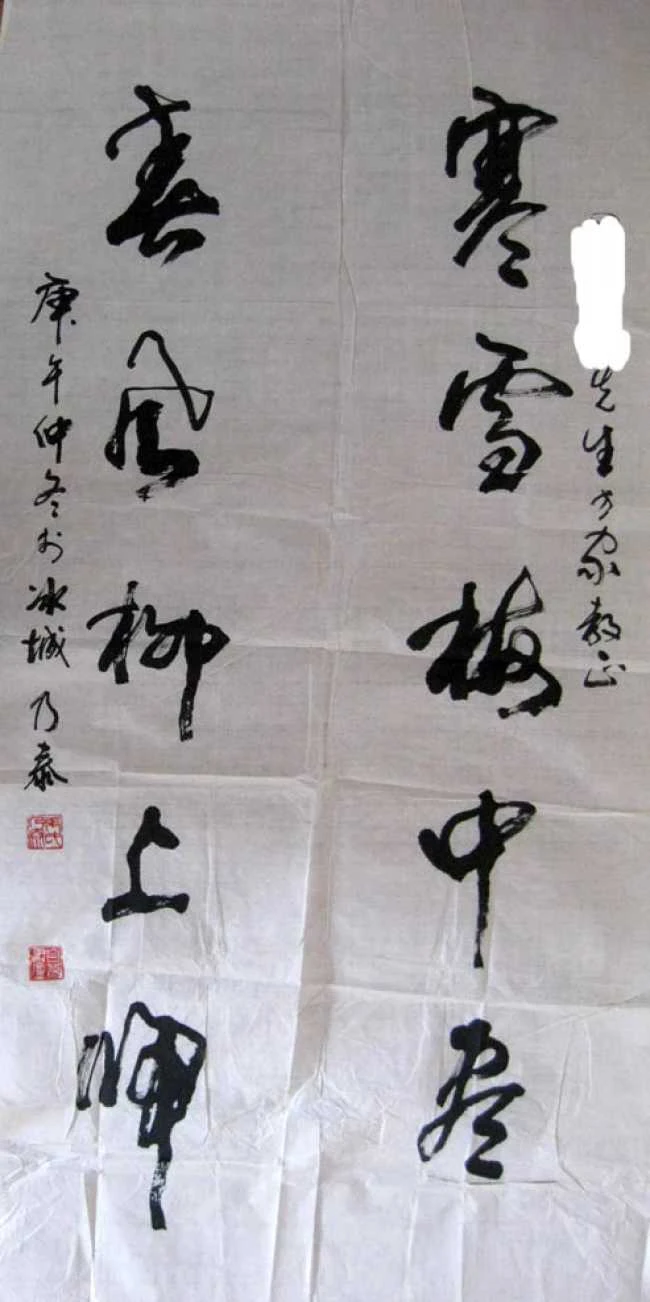 先生方家教正
寒雪梅中尽
春风柳上归
庚午仲冬於冰城 乃泰